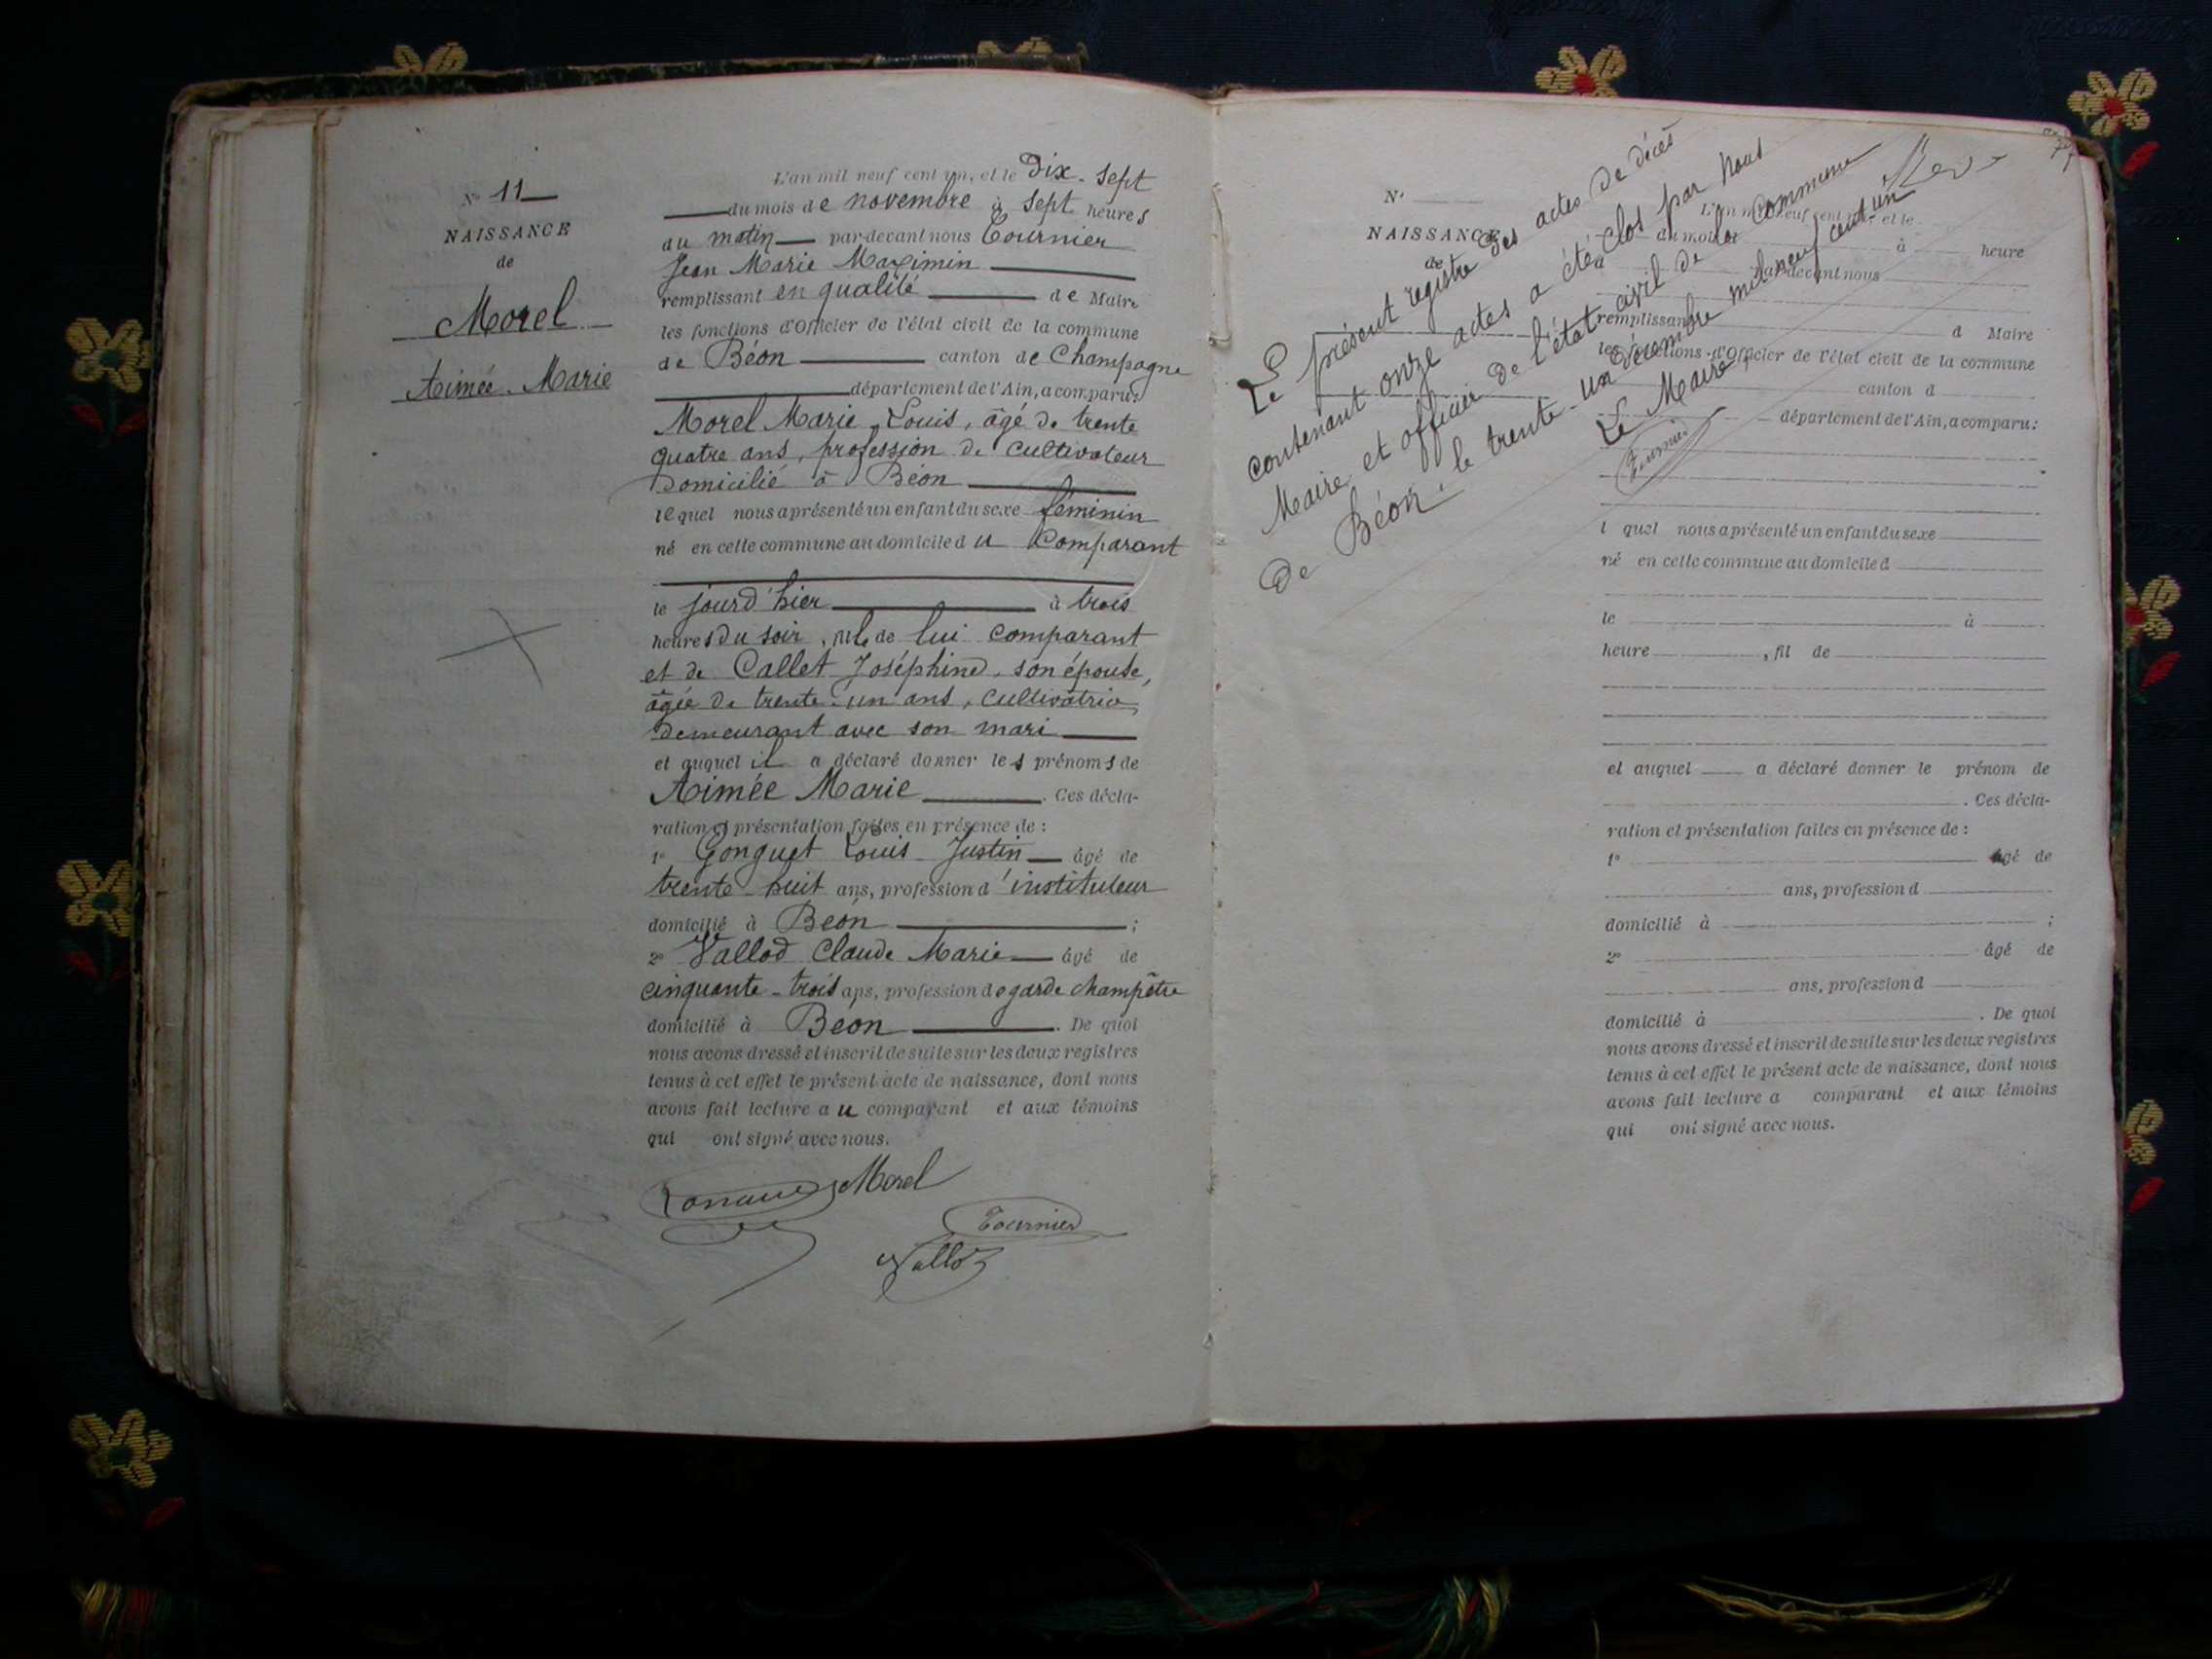 N° 11
NAISSANCE
de
Morel
Aimée Marie
L'an mil neuf cent un, et le Dix-sept
du mois de novembre à sept heures
du matin par-devant nous Tournier
Jean Marie Maximin
remplissant en qualité de Maire
les fonctions d'Officier de l'état civil de la commune
de Béon canton de Champagne
département de l'Ain, a comparu:
Morel Marie Louis, âgé de trente
quatre ans, profession de cultivateur
Domicilié à Béon
lequel nous a présenté un enfant du sexe féminin
né en cette commune au domicile du Comparant
le jourd'hier à trois
heures du soir, fille de lui comparant
et de Callet Joséphine, son épouse,
âgée de trente-un ans, cultivatrice,
demeurant avec son mari
et auquel il a déclaré donner les prénoms de
Aimée Marie. Ces décla-
ration et présentation faites en présence de :
1° Gonguet Louis Justin âgé de
trente-huit ans, profession d'instituteur
domicilié à Béon ;
2° Vallod Claude Marie âgé de
cinquante-trois ans, profession de garde champêtre
domicilié à Béon. De quoi
nous avons dressé et inscrit de suite sur les deux registres
tenus à cet effet le présent acte de naissance, dont nous
avons fait lecture au comparant et aux témoins
qui ont signé avec nous.
Morel
Tournier
Vallod
Le présent registre des actes de décès
contenant onze actes a été clos par Nous
Maire et officier de l'état civil de la commune
de Béon, le trente-un décembre mil neuf cent un
Le Maire,
Tournier
N°
NAISSANCE
de
L'an mil neuf cent un, et le
du mois d à heure
par-devant nous
remplissant d Maire
les fonctions d'Officier de l'état civil de la commune
canton d
département de l'Ain, a comparu:
l quel nous a présenté un enfant du sexe
né en cette commune au domicile d
le à
heure , fil de
et auquel a déclaré donner le prénom de
. Ces décla-
ration et présentation faites en présence de :
1° âgé de
ans, profession d
domicilié à ;
2° âgé de
ans, profession d
domicilié à . De quoi
nous avons dressé et inscrit de suite sur les deux registres
tenus à cet effet le présent acte de naissance, dont nous
avons fait lecture a comparant et aux témoins
qui ont signé avec nous.